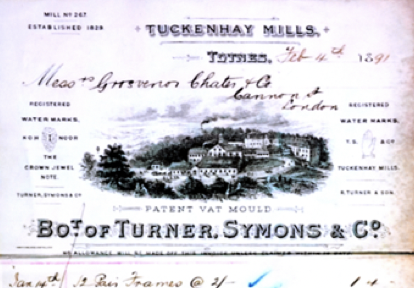 MILL Nº 267.
ESTABLISHED 1829.
TUCKENHAY MILLS,
TOTNES, Feb 4th 1891
Messrs Grosvenor Chater & Co
Cannon St
London
REGISTERED
WATER MARKS,
KOH I NOOR
THE
CROWN JEWEL
NOTE.
TURNER, SYMONS & Co
REGISTERED
WATER MARKS,
T.S. & Co
TUCKENHAY MILLS,
R. TURNER & SON.
PATENT VAT MOULD
BOT. OF TURNER, SYMONS & Co.
NO ALLOWANCE WILL BE MADE OFF THIS INVOICE UNLESS
Jan 14th 12 Pair Frames @ 2/- 1 4 -